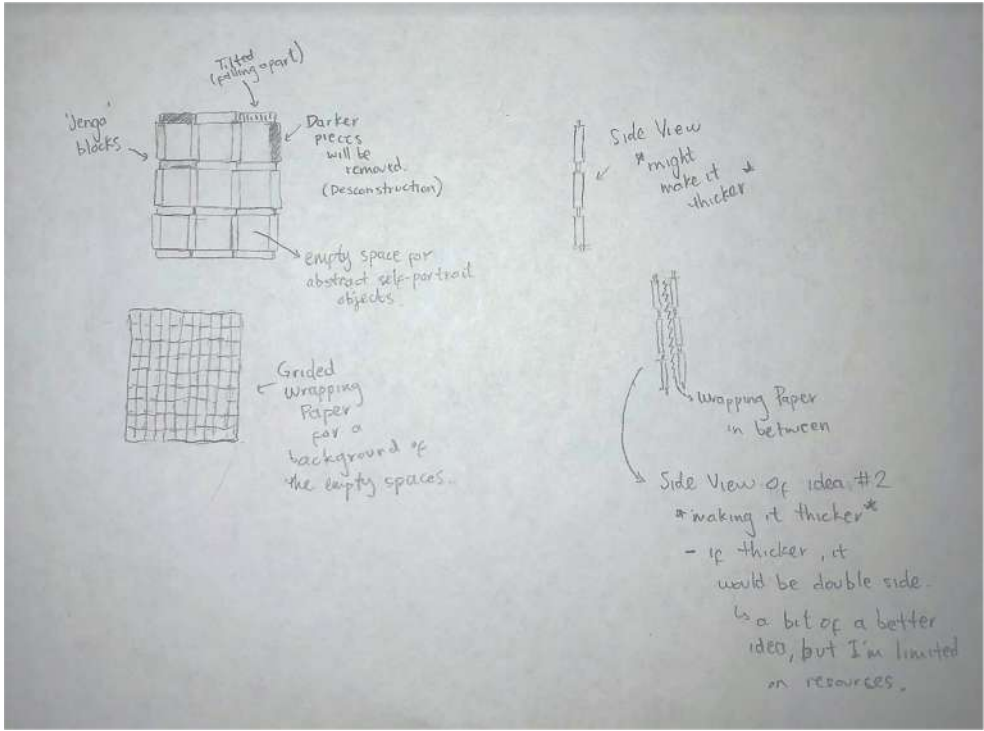 Tilted
(falling apart)
'Jenga'
blocks
Darker
pieces
will be
removed.
(Desconstruction)
empty space for
abstract self-portrait
objects
Grided
wrapping
Paper
for a
background of
the empty spaces.
Side View
*might
make it
thicker*
wrapping Paper
in between
Side View Of idea #2
*making it thicker*
- if thicker, it
would be double side.
↳ a bit of a better
idea, but I'm limited
on resources.